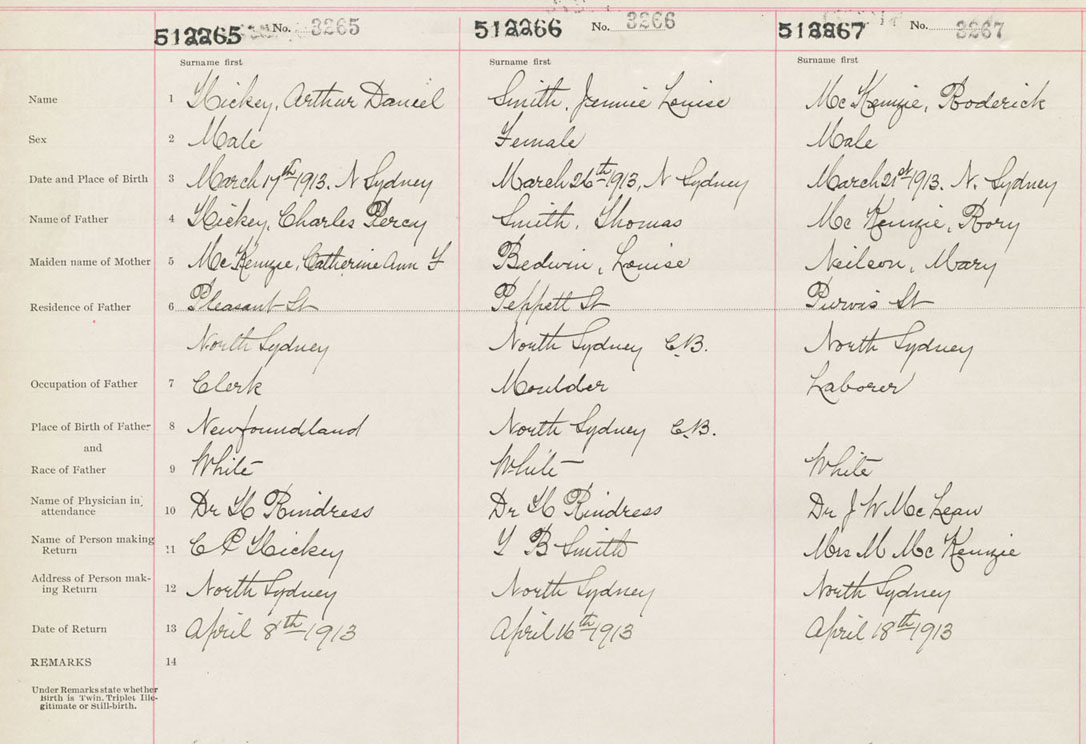 512265 No. 3265 512266 No. 3266 512267 No. 3267
Surname first Surname first Surname first
Name 1 Hickey, Arthur Daniel Smith, Jennie Louise Mc Kenzie, Roderick
Sex 2 Male Female Male
Date and Place of Birth 3 March 17th 1913. N Sydney March 26th 1913, N Sydney March 21st 1913. N. Sydney
Name of Father 4 Hickey, Charles Percy Smith, Thomas Mc Kenzie, Rory
Maiden name of Mother 5 McKenzie, Catherine Ann F Bedwin, Louise Neilson, Mary
Residence of Father 6 Pleasant St Peppett St Purvis St
North Sydney North Sydney C.B. North Sydney
Occupation of Father 7 Clerk Moulder Laborer
Place of Birth of Father 8 Newfoundland North Sydney C.B.
and
Race of Father 9 White White White
Name of Physician in attendance 10 Dr H Rindress Dr H Rindress Dr J W McLean
Name of Person making Return 11 C P Hickey B Smith Mrs M McKenzie
Address of Person mak-
ing Return 12 North Sydney North Sydney North Sydney
Date of Return 13 April 8th 1913 April 16th 1913 April 18th 1913
REMARKS 14
Under Remarks state whether
Birth is Twin, Triplet Ille-
gitimate or Still-birth.